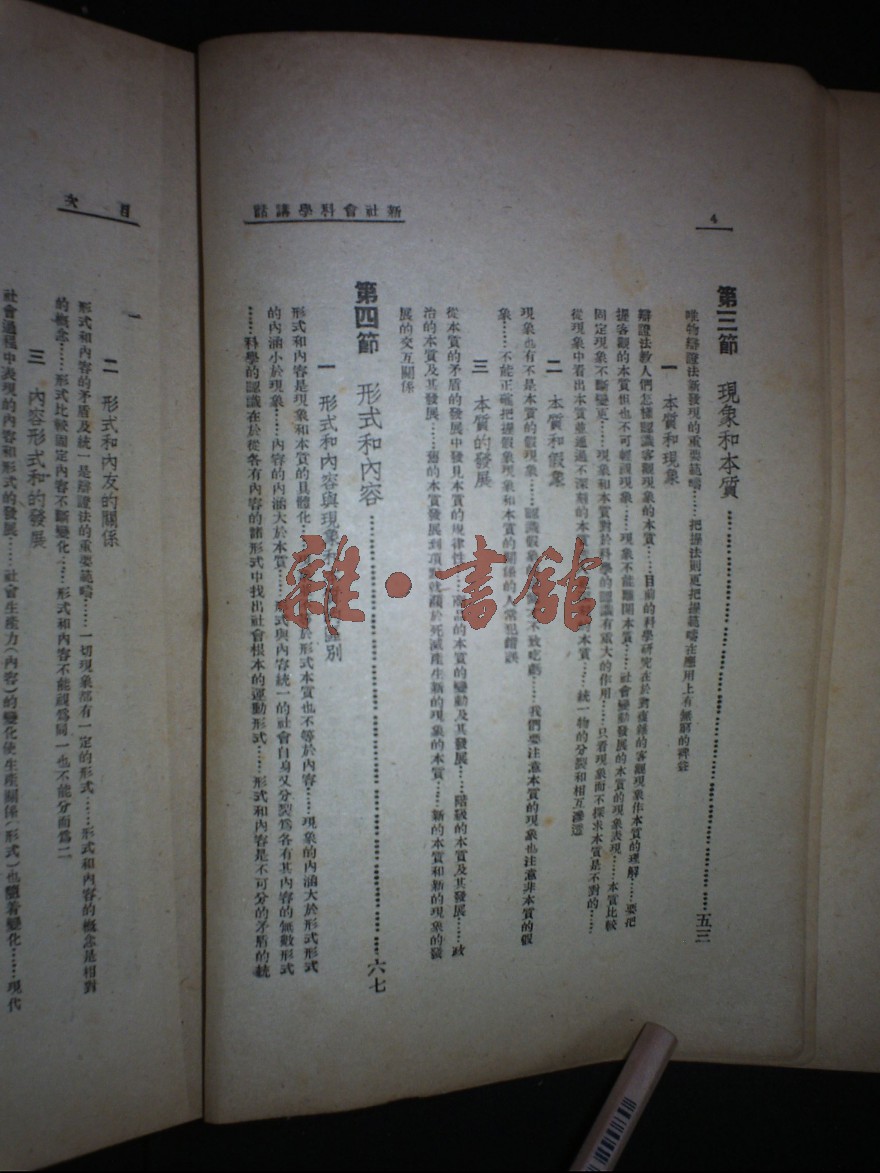 4
新社會科學講話
第三節 現象和本質……五三
唯物辯證法新發現的重要範疇……把握法則更把握範疇在應用上有無窮的裨益
一 本質和現象
辯證法教人們怎樣認識客觀現象的本質……目前的科學研究在於對複雜的客觀現象作本質的理解……要把
握客觀的本質但也不可輕視現象……現象不能離開本質……社會變動發展的本質的現象表現……本質比較
固定現象不斷變更……現象和本質對於科學的認識有重大的作用……只看現象而不探求本質是不對的……
從現象中看出本質並通過不深刻的本質……本質……統一物的分裂和相互滲透
二 本質和假象
現象也有不是本質的假現象……認識假象的……不致吃虧……我們要注意本質的現象也注意非本質的假
象……不能正確把握假象現象和本質的關係的人常犯錯誤
三 本質的發展
從本質的矛盾的發展中發見本質的規律性……商品的本質的變動及其發展……階級的本質及其發展……政
治的本質及其發展……舊的本質發展到頂點就趨於死滅產生新的現象的本質……新的本質和新的現象的發
展的交互關係
第四節 形式和內容……六七
一 形式和內容與現象和區別
形式和內容是現象和本質的具體化……於形式本質也不等於內容……現象的內涵大於形式形式
的內涵小於現象……內容的內涵大於本質……形式與內容統一的社會自身又分裂爲各有其內容的無數形式
……科學的認識在於從各有內容的諸形式中找出社會根本的運動形式……形式和內容是不可分的矛盾的統
雜·書館
目次
一
二 形式和內友的關係
形式和內容的矛盾及統一是辯證法的重要範疇……一切現象都有一定的形式……形式和內容的概念是相對
的概念……形式比較固定內容不斷變化……形式和內容不能視爲同一也不能分而爲二
三 內容形式和的發展
社會過程中表現的內容和形式的發展……社會生產力（內容）的變化使生產關係（形式）也隨着變化……現代